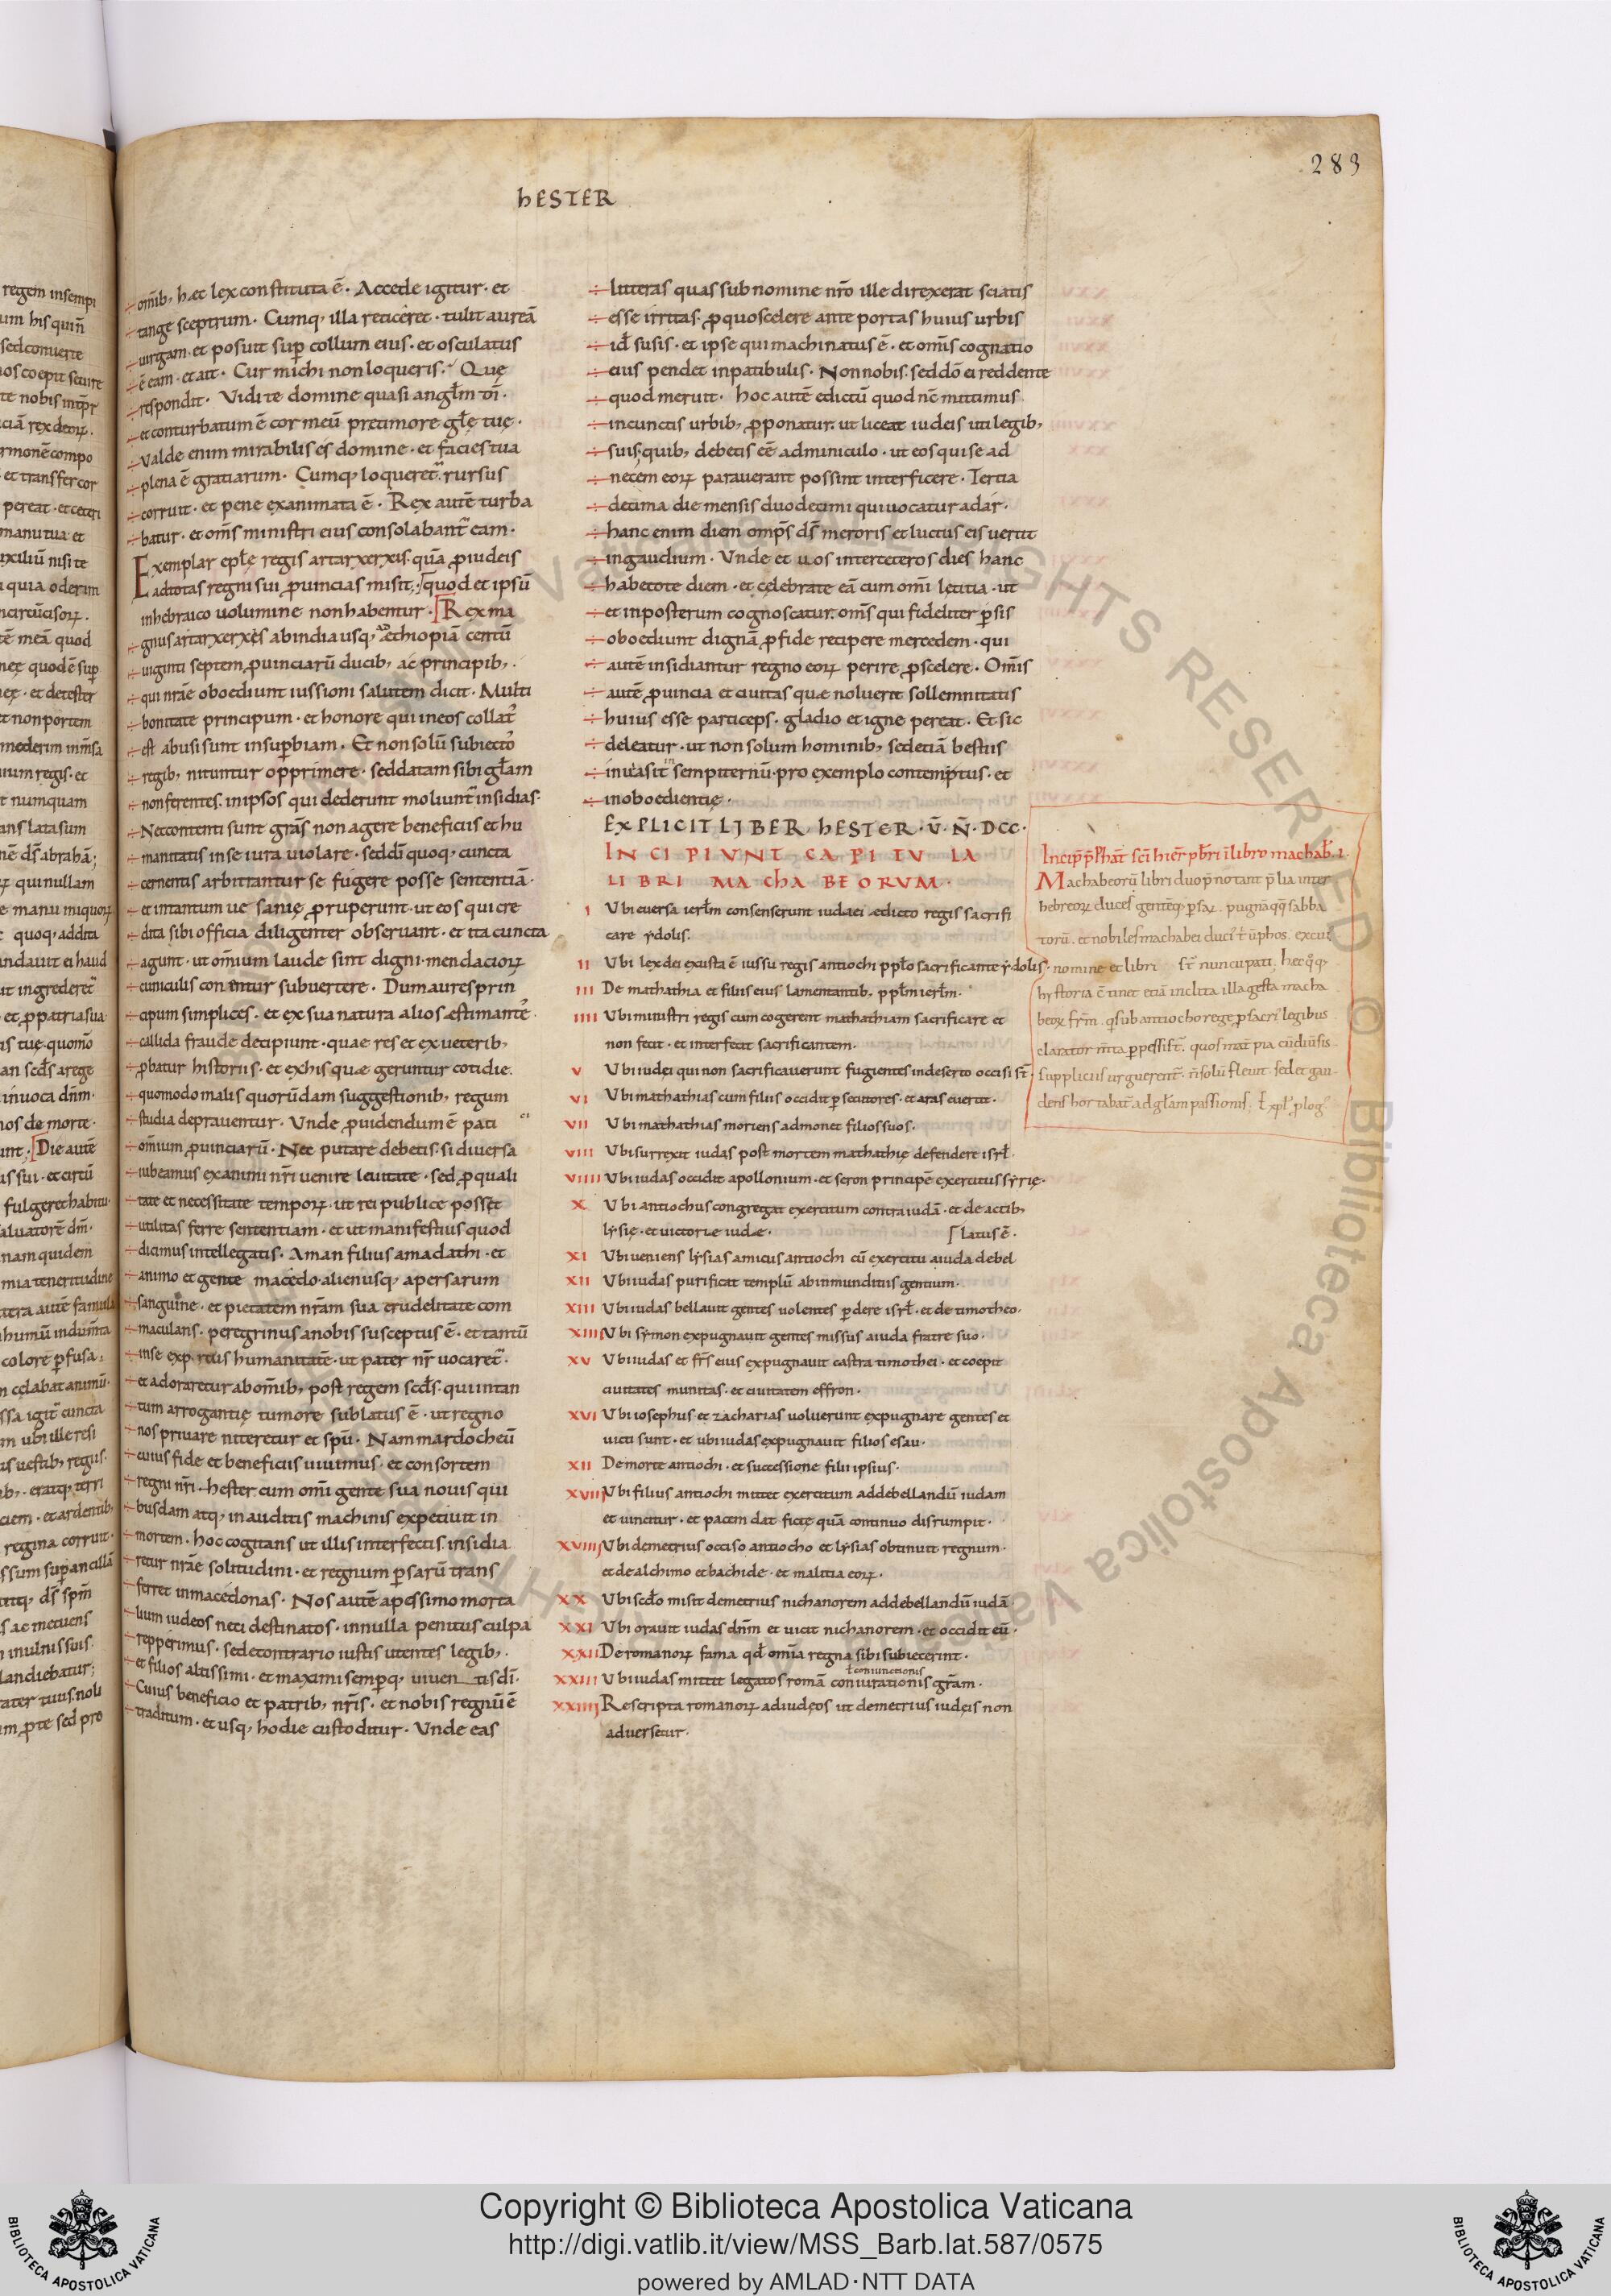 283
hESTER
omib; hæc lex constituta ē. Accede igitur. et
tange sceptrum. Cumq; illa reticeret. tulit aureā
uirgam. et posuit sup collum eius. et osculatus
ē eam. et ait. Cur michi non loqueris. Quę
respondit. Vidi te domine quasi anglm di.
et conturbatum ē cor meū pre timore glę tuę.
Valde enim mirabilis es domine. et facies tua
plena ē gratiarum. Cumq; loqueret rursus
corruit. et pene exanimata ē. Rex autē turba
batur. et oms ministri eius consolabant eam.
Exemplar eplę regis artarxerxis. quā puideis
ad totas regni sui puincias misit; quod et ipsū
in hebraico uolumine non habentur. Rex ma
gnus artarxerxes ab india usq; ęthiopiā centū
uiginti septem puinciarū ducib; ac principib;.
qui nrāe oboediunt iussioni salutem dicit. Multi
bonitate principum. et honore qui in eos collat
est abusi sunt in supbiam. Et non solū subiecto
regib; nituntur opprimere. sed datam sibi glam
non ferentes. in ipsos qui dederunt moliunt insidias.
Nec contenti sunt grās non agere beneficiis et hu
manitatis in se iura uiolare. sed dī quoq; cuncta
cernentis arbitrantur se fugere posse sententiā.
et in tantum ue sanię pruperunt. ut eos qui cre
dita sibi officia diligenter obseruant. et ita cuncta
agunt. ut omium laude sint digni. mendacioꝝ
cuniculis conentur subuertere. Dum aures prin
cipum simplices. et ex sua natura alios æstimante.
callida fraude decipiunt. quae res et ex ueterib;
pbatur historiis. et ex his quæ geruntur cotidie.
quomodo malis quorūdam suggestionib; regum
studia deprauentur. Unde puidendum ē paci
omium puinciarū. Nec putare debetis. si diuersa
iubeamus ex animi nri uenire leuitate. sed p quali
tate et necessitate tempoꝝ. ut rei publice posset
utilitas ferre sententiam. et ut manifestius quod
dicimus intellegatis. Aman filius amadathi. et
animo et gente macedo. alienusq; a persarum
sanguine. et pietatem nrām sua crudelitate com
maculans. peregrinus a nobis susceptus ē. et tantū
in se expertus humanitatē. ut pater nr uocaret.
et adoraretur ab omib; post regem scds. qui in tan
tum arrogantię tumore sublatus ē. ut regno
nos priuare niteretur et spū. Nam mardocheū
cuius fide et beneficiis uiuimus. et consortem
regni nri. hester cum omi gente sua nouis qui
busdam atq; inauditis machinis expetiuit in
mortem. hoc cogitans ut illis interfectis. insidia
retur nrāe solitudini. et regnum psarū trans
ferret in macedonas. Nos autē a pessimo morta
lium iudeos neci destinatos. in nulla penitus culpa
repperimus. sed e contrario iustis utentes legib;.
et filios altissimi. et maximi semperq; uiuentis di.
Cuius beneficio et patrib; nris. et nobis regnū ē
traditum. et usq; hodie custoditur. Unde eas
litteras quas sub nomine nro ille direxerat sciatis
esse irritas. p quo scelere ante portas huius urbis
id susis. et ipse qui machinatus ē. et omis cognatio
eius pendet in patibulis. Non nobis. sed dō ei reddente
quod meruit. hoc autē edictū quod nc mittimus
in cunctis urbib; pponatur. ut liceat iudeis uti legib;
suis. quib; debetis eē adminiculo. ut eos qui se ad
necem eoꝝ parauerant possint interficere. Tertia
decima die mensis duodecimi qui uocatur adar.
hanc enim diem omps ds meroris et luctus eis uertit
in gaudium. Unde et uos inter ceteros dies hanc
habetote diem. et celebrate eā cum omi letitia. ut
et in posterum cognoscatur. oms qui fideliter psis
oboediunt dignā p fide recipere mercedem. qui
autē insidiantur regno eoꝝ perire p scelere. Omis
autē puincia et ciuitas quæ noluerit sollemnitatis
huius esse particeps. gladio et igne pereat. Et sic
deleatur. ut non solum hominib; sed etiā bestiis
inuia sit in sempiternū. pro exemplo contemptus. et
inoboedientię.
EXPLICIT LIBER hESTER. V̄. N̄. DCC.
INCIPIUNT CAPITULA
LIBRI MAChABEORUM.
I Ubi euersa ierlm consenserunt iudaei ædicto regis sacrifi
care ydolis.
II Ubi lex dei exusta ē iussu regis antiochi pplo sacrificante ydolis.
III De mathathia et filiis eius lamentantib; pplm ierlm.
IIII Ubi ministri regis cum cogerent mathathiam sacrificare et
non fecit. et interfecit sacrificantem.
V Ubi iudei qui non sacrificauerunt fugientes in deserto occisi st.
VI Ubi mathathias cum filiis occidit psecutores. et aras euertit.
VII Ubi mathathias moriens admonet filios suos.
VIII Ubi surrexit iudas post mortem mathathię defendere isrl.
VIIII Ubi iudas occidit apollonium. et seron principē exercitus syrię.
X Ubi antiochus congregat exercitum contra iudā. et de actib;
lysię. et uictoriæ iudæ. latus ē.
XI Ubi ueniens lysias amicus antiochi cū exercitu a iuda debel
XII Ubi iudas purificat templū ab inmunditiis gentium.
XIII Ubi iudas bellauit gentes uolentes pdere isrl. et de timotheo.
XIIII Ubi symon expugnauit gentes missus a iuda fratre suo.
XV Ubi iudas et frs eius expugnauit castra timothei. et coepit
ciuitates munitas. et ciuitatem effron.
XVI Ubi iosephus et zacharias uoluerunt expugnare gentes et
uicti sunt. et ubi iudas expugnauit filios esau.
XII De morte antiochi. et successione filii ipsius.
XVIII Ubi filius antiochi mittet exercitum ad debellandū iudam
et uincitur. et pacem dat fictę quā continuo disrumpit.
XVIIII Ubi demetrius occiso antiocho et lysias obtinuit regnum.
et de alchimo et bachide. et malitia eoꝝ.
XX Ubi scdo misit demetrius nichanorem ad debellandū iudā.
XXI Ubi orauit iudas dnm et uicit nichanorem. et occidit eū.
XXII De romanoꝝ fama qd omia regna sibi subiecerint.
ł coniunctionis
XXIII Ubi iudas mittit legatos romā coniurationis gram.
XXIIII Rescripta romanoꝝ ad iudęos ut demetrius iudęis non
aduersetur.
Incip phat sci hier pbri i libro machab. i.
Machabeorū libri duo p notant plia inter
hebreoꝝ duces gentēq; psaꝝ. pugnā qq sabba
torū. et nobiles machabei duci t uphos. excui
nomine et libri st nuncupati. hec qq
hystoria ē tinet etiā inclita illa gesta macha
beoꝝ frm. q sub antiocho rege p sacri legibus
ppessi st. quos mat pia cū diūsis
suppliciis urguerent. n solū fleuit. sed et gau
dens hortabat ad glam passionis. Expl plog
Copyright © Biblioteca Apostolica Vaticana
http://digi.vatlib.it/view/MSS_Barb.lat.587/0575
powered by AMLAD·NTT DATA
BIBLIOTECA APOSTOLICA VATICANA
BIBLIOTECA APOSTOLICA VATICANA